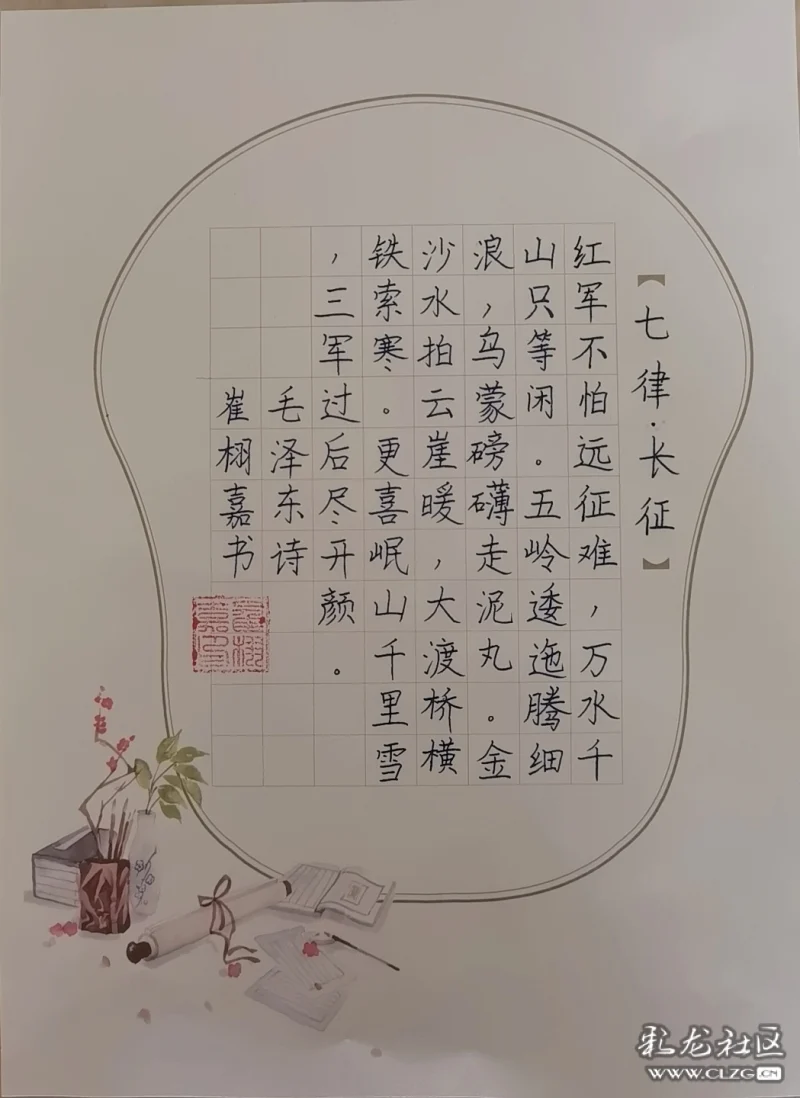 【七律·长征】
红军不怕远征难，万水千
山只等闲。五岭逶迤腾细
浪，乌蒙磅礴走泥丸。金
沙水拍云崖暖，大渡桥横
铁索寒。更喜岷山千里雪
，三军过后尽开颜。
毛泽东诗
崔栩嘉书
彩龙社区
WWW.CLZG.CN